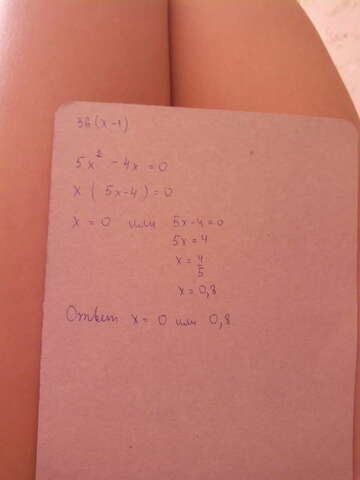 3б(x-1)
5x² - 4x = 0
x(5x-4) = 0
x = 0 или 5x-4=0
5x = 4
x = 4/5
x = 0,8
Ответ x = 0 или 0,8